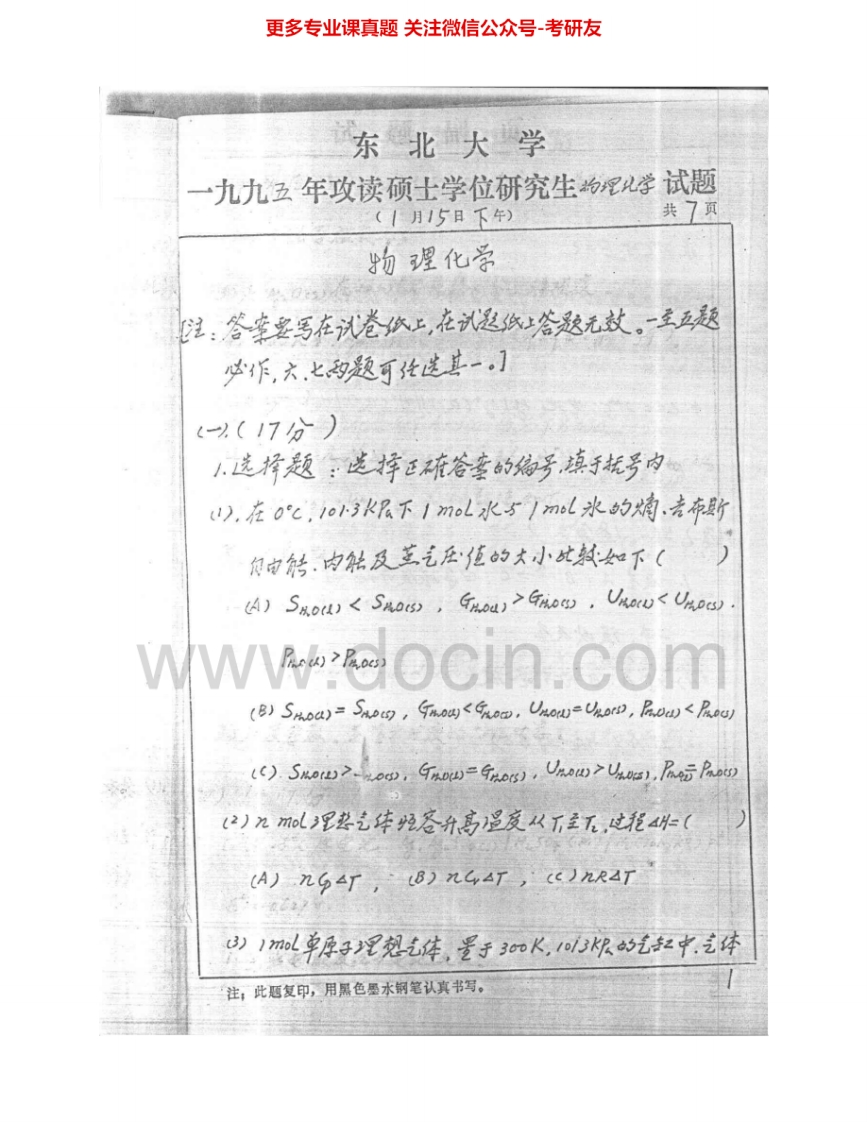 更多专业课真题 关注微信公众号-考研友
东北大学
一九九五年攻读硕士学位研究生物理化学试题
(1月15日下午) 共7页
物理化学
[注:答案要写在试卷纸上,在试题纸上答题无效。一至五题
必作,六、七两题可任选其一。]
(一).(17分)
1.选择题:选择正确答案的编号,填于括号内
(1).在0°C,101.3KPa下1mol水与1mol冰的熵、吉布斯
自由能、内能及蒸气压值的大小比较如下( )
(A) S_{H2O(l)} < S_{H2O(s)} , G_{H2O(l)} > G_{H2O(s)} , U_{H2O(l)} < U_{H2O(s)} .
P_{H2O(l)} > P_{H2O(s)}
www.docin.com
(B) S_{H2O(l)} = S_{H2O(s)} , G_{H2O(l)} < G_{H2O(s)} , U_{H2O(l)} = U_{H2O(s)} , P_{H2O(l)} < P_{H2O(s)}
(C). S_{H2O(l)} > _{H2O(s)} , G_{H2O(l)} = G_{H2O(s)} , U_{H2O(l)} > U_{H2O(s)} , P_{H2O(l)} = P_{H2O(s)}
(2) n mol理想气体恒容升高温度从T1至T2,过程ΔH=( )
(A) nCpΔT , (B) nCvΔT , (C) nRΔT
(3) 1mol单原子理想气体,置于300K,101.3KPa的气缸中.气体
注:此题复印,用黑色墨水钢笔认真书写。
1